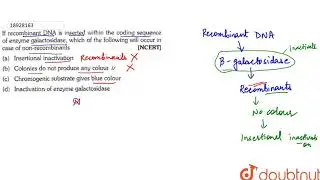 18928163
If recombinant DNA is inserted within the coding sequence
of enzyme galactosidase, which of the following will occur in
case of non-recombinants [NCERT]
(a) Insertional inactivation Recombinants X
(b) Colonies do not produce any colour " X
(c) Chromogenic substrate gives blue colour
(d) Inactivation of enzyme galactosidase
Recombinant DNA
Inactivate
β-galactosidase
Recombinants
No colour
Insertional inactivati
on
doubtnut